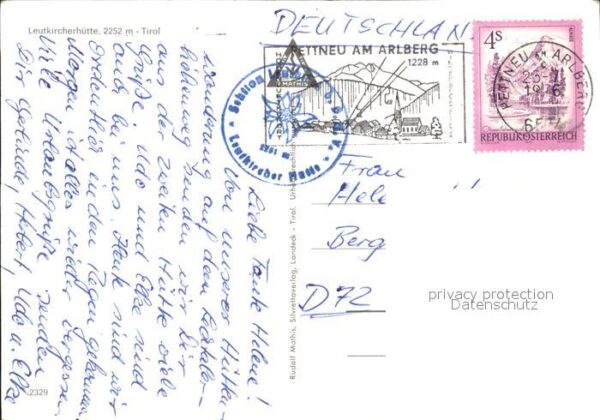 Leutkircherhütte, 2252 m - Tirol
DEUTSCHLAND
PETTNEU AM ARLBERG
1228 m
4S
REPUBLIK ÖSTERREICH
PETTNEU AM ARLBERG
1976
6574
Sektion
Leutkircher Hütte
2251 m
Liebe Tante Helene!
Von unserer Hütten-
wanderung auf dem Lechtaler-
höhenweg senden wir Dir
aus der zweiten Hütte viele
Grüße. Udo und Elke sind
auch bei uns. Heute sind wir
ordentlich in den Regen gekommen.
Morgen ist alles wieder vergessen.
Viele Urlaubsgrüße senden
Dir Gertrude, Hubert, Udo u. Elke
Frau
Hele
Berg
D72
Rudolf Mathis, Silvrettaverlag, Landeck - Tirol.
2329
privacy protection
Datenschutz